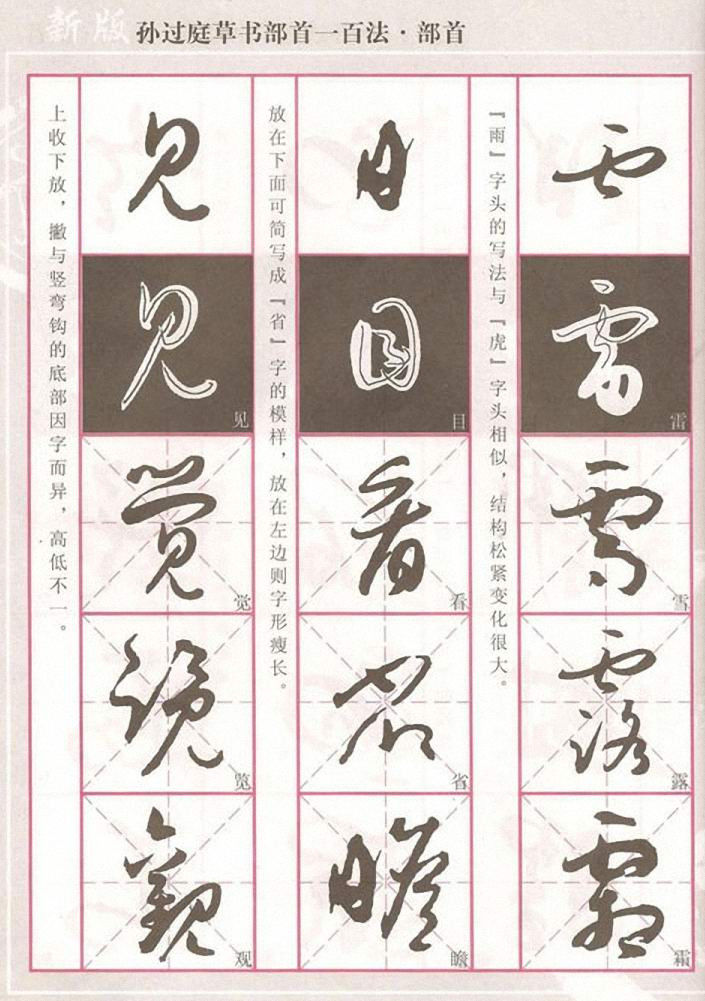 新版 孙过庭草书部首一百法·部首
雷
雪
露
霜
『雨』字头的写法与『虎』字头相似，结构松紧变化很大。
目
看
省
瞻
放在下面可简写成『省』字的模样，放在左边则字形瘦长。
见
觉
览
观
上收下放，撇与竖弯钩的底部因字而异，高低不一。